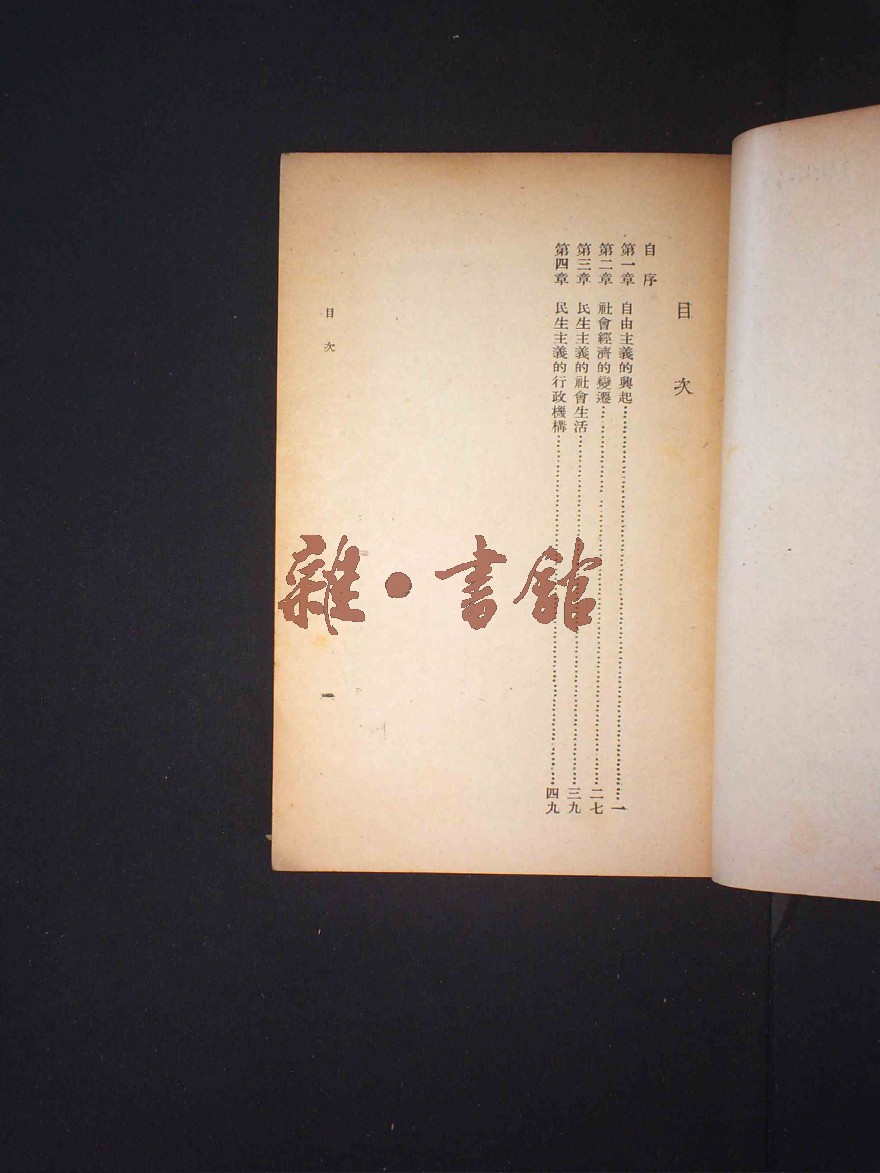 目次
自序
第一章 自由主義的興起……一
第二章 社會經濟的變遷……二七
第三章 民生主義的社會生活……三九
第四章 民生主義的行政機構……四九
目次
一
雜·書館